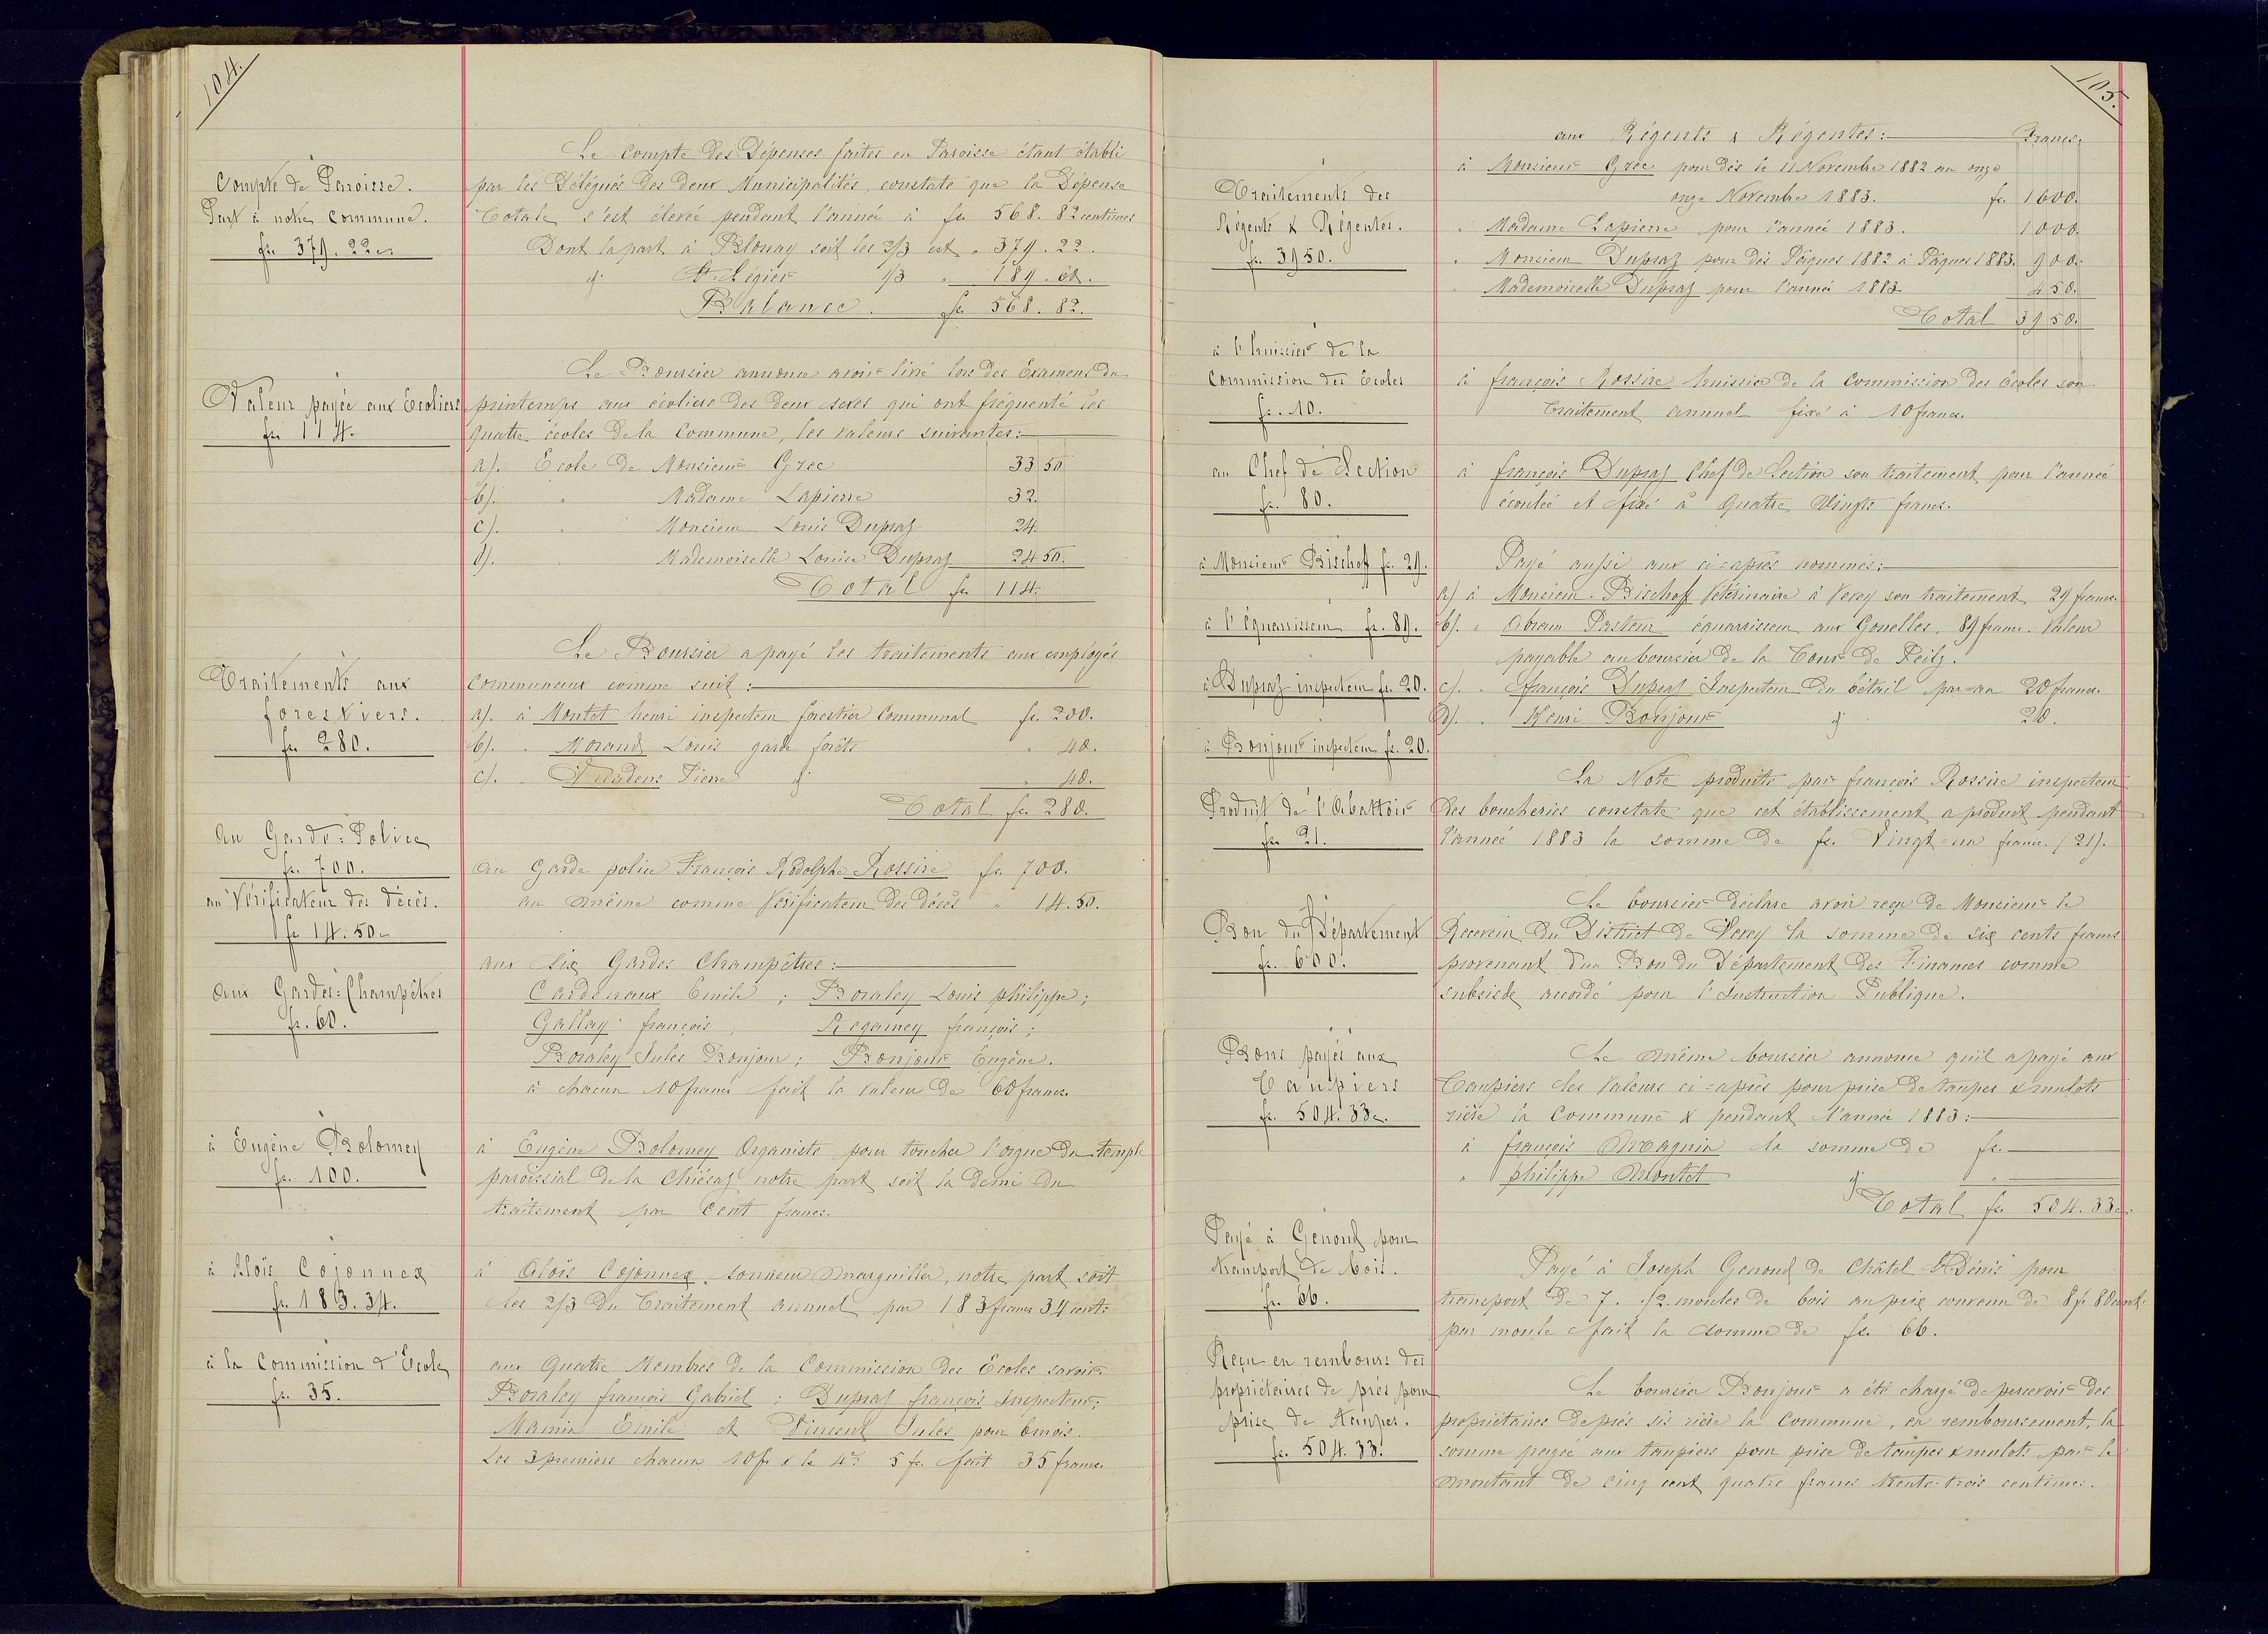 104.
Compte de Paroisse.
Part à notre commune.
fr. 379. 22 c.
Le compte des Dépenses faites en Paroisse étant établi
par les Délégués des deux Municipalités, constate que la Dépense
Totale s'est élevée pendant l'année à fr. 568. 82 centimes
Dont la part à Blonay soit les 2/3 est " 379. 22.
id St Légier 1/3 " 189. 60.
Balance. fr. 568. 82.
Valeur payée aux Ecoliers
fr. 114.
Le Boursier annonce avoir livré lors des Examens du
printemps aux écoliers des deux sexes qui ont fréquenté les
quatre écoles de la Commune, les valeurs suivantes:
a). Ecole de Monsieur Grec 33 50
b). " Madame Lapierre 32.
c). " Monsieur Louis Dupraz 24.
d). " Mademoiselle Louise Dupraz 24 50.
Total fr. 114.
Traitements aux
forestiers.
fr. 280.
Le Boursier a payé les traitements aux employés
Communaux comme suit:
a). à Montet henri inspecteur forestier Communal fr. 200.
b). " Morand Louis garde forêts " 40.
c). " Pierre id " 40.
Total fr. 280.
Au Garde=Police
fr. 700.
au Vérificateur des décès.
fr. 14. 50 c
Au Garde police François Rodolphe Rossire fr. 700.
au même comme Vérificateur des décès " 14. 50.
Aux Gardes=Champêtres
fr. 60.
aux six Gardes Champêtres:
Cardinaux Emile ; Boraley Louis philippe ;
Gallay françois ; Regamey françois ;
Boraley Jules Bonjour ; Bonjour Eugène.
à chacun 10 francs fait la valeur de 60 francs.
à Eugène Bolomey
fr. 100.
à Eugène Bolomey Organiste pour toucher l'orgue du temple
paroissial de la Chiésaz notre part soit la demi du
traitement par Cent francs.
à Aloïs Cojonnex
fr. 183. 34.
à Aloïs Cojonnex, sonneur Marguiller, notre part soit
les 2/3 du Traitement annuel par 183 francs 34 cent.
à la Commission d'Ecole
fr. 35.
aux Quatre Membres de la Commission des Ecoles savoir
Boraley françois Gabriel ; Dupraz françois Inspecteur ;
Mamin Emile et Vincent Jules pour 6 mois.
Les 3 premiers chacun 10 fr & le 4e 5 fr. fait 35 francs.
105.
Traitements des
Régents & Régentes.
fr. 3950.
aux Régents & Régentes: Francs.
à Monsieur Grec pour dès le 11 Novembre 1882 au onze
onze Novembre 1883. fr. 1600.
" Madame Lapierre pour l'année 1883. 1000.
" Monsieur Dupraz pour dès Pâques 1882 à Pâques 1883. 900.
" Mademoiselle Dupraz pour l'année 1883. 450.
Total 3950.
à l'huissier de la
Commission des Ecoles
fr. 10.
à françois Rossire huissier de la Commission des Ecoles son
Traitement annuel fixé à 10 francs.
au Chef de Section
fr. 80.
à françois Dupraz Chef de Section son traitement pour l'année
écoulée et fixé à Quatre Vingts francs.
à Monsieur Bischoff fr. 29.
à l'équarrisseur fr. 89.
à Dupraz inspecteur fr. 20.
à Bonjour inspecteur fr. 20.
Payé aussi aux ci=après nommés:
a) à Monsieur Bischoff Vétérinaire à Vevey son traitement 29 francs.
b). " Abram Pasteur équarrisseur aux Gonelles, 89 francs. Valeur
payable au boursier de la Tour de Peilz.
c). " françois Dupraz Inspecteur du bétail par an 20 francs.
d). " Henri Bonjour id 20.
Produit de l'Abattoir
fr. 21.
La Note produite par françois Rossire inspecteur
des boucheries constate que cet établissement a produit pendant
l'année 1883 la somme de fr. Vingt=un francs. (21).
Bon du Département
fr. 600.
Le boursier déclare avoir reçu de Monsieur le
Receveur du District de Vevey la somme de six cents francs
provenant d'un Bon du Département des Finances comme
subside accordé pour l'Instruction Publique.
Bons payés aux
Taupiers
fr. 504. 33 c.
Le même boursier annonce qu'il a payé aux
Taupiers les Valeurs ci=après pour prise de taupes & mulots
rière la Commune & pendant l'année 1883:
à françois Magnin la somme de fr.
" philippe Montet id "
Total fr. 504. 33 c.
Payé à Genoud pour
transport de bois.
fr. 66.
Payé à Joseph Genoud de Châtel St Dénis pour
transport de 7. 1/2 moules de bois au prix convenu de 8 fr 80 cent.
par moule fait la somme de fr. 66.
Reçu en rembours des
propriétaires de prés pour
prise de taupes.
fr. 504. 33.
Le boursier Bonjour a été chargé de percevoir des
propriétaires de prés sis rière la Commune, en remboursement, la
somme payée aux taupiers pour prise de taupes & mulots par le
montant de Cinq cent quatre francs trente-trois centimes.